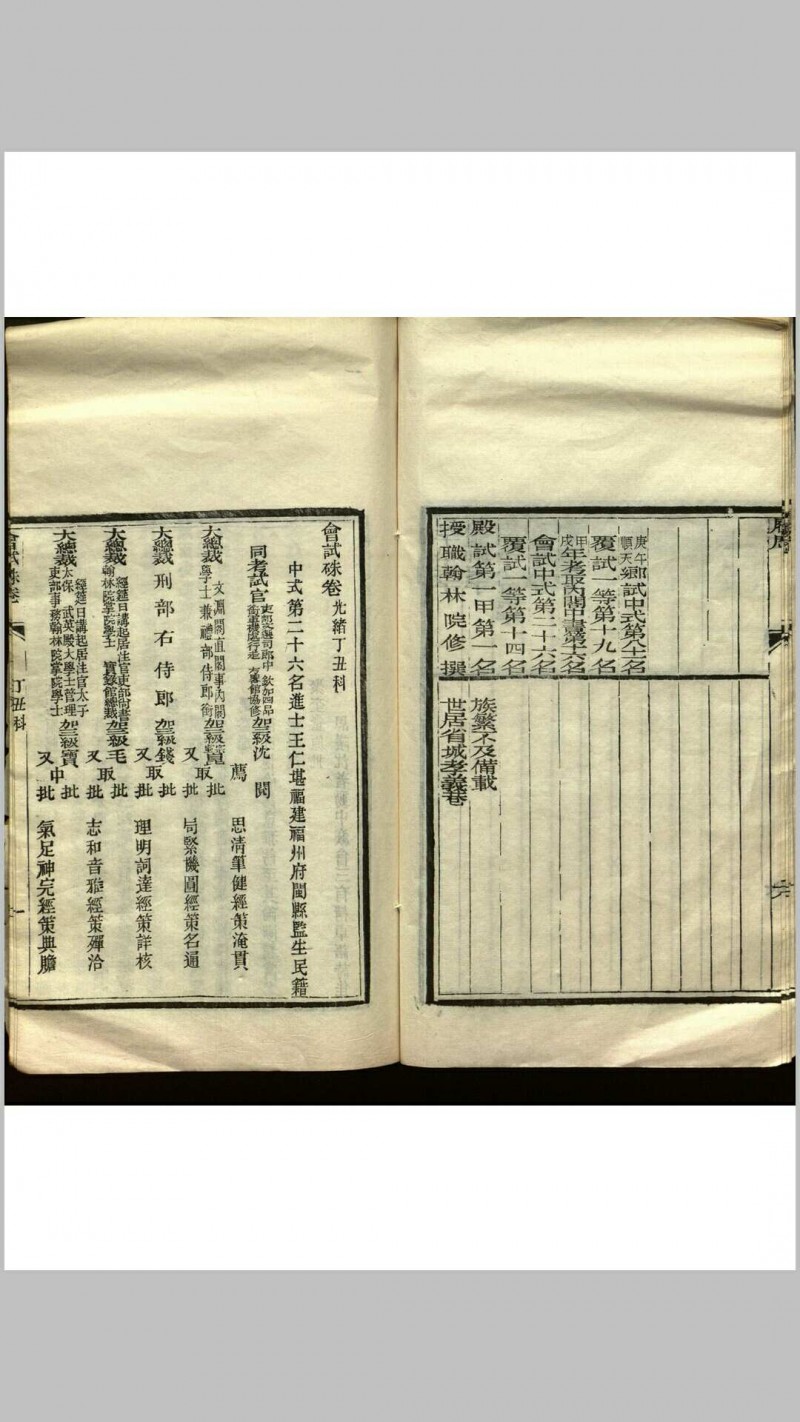 履歷
庚午順天鄉試中式第八十名
覆試一等第十九名
甲戌年考取內閣中書第十六名
會試中式第二十六名
覆試一等第十四名
殿試第一甲第一名
授職翰林院修撰
族繁不及備載
世居省城孝義巷
會試硃卷 光緒丁丑科
中式第二十六名進士王仁堪福建福州府閩縣監生民籍
同考試官 加三級沈 閱
薦 思清筆健經策淹貫
大總裁 文淵閣直閣事內閣學士兼禮部侍郎銜加三級崑 批
又取批 局緊機圓經策名通
大總裁刑部右侍郎加三級錢 批
又取批 理明詞達經策詳核
大總裁 經筵日講起居注官吏部尚書翰林院掌院學士 實錄館總裁加三級毛 批
又取批 志和音雅經策殫洽
大總裁 經筵日講起居注官太子太保 武英殿大學士管理吏部事務翰林院掌院學士加三級寶 批
又中批 氣足神完經策典贍
會試硃卷
丁丑科
一